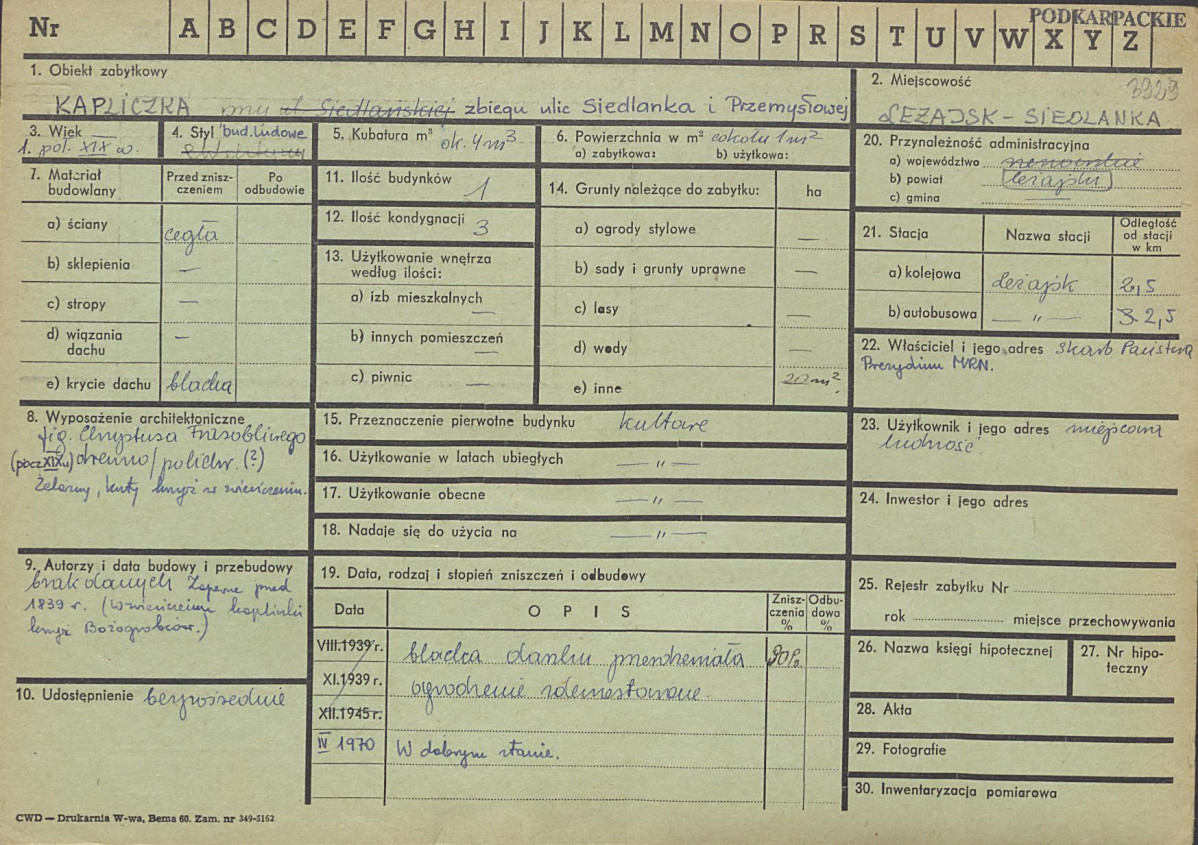 Nr A B C D E F G H I J K L M N O P R S T U V W X Y Z
PODKARPACKIE
1. Obiekt zabytkowy
KAPLICZKA przy ul. Siedlańskiej zbiegu ulic Siedlanka i Przemysłowej
2. Miejscowość
3929
LEŻAJSK - SIEDLANKA
3. Wiek
1. poł. XIX w.
4. Styl bud. ludowe
5. Kubatura m³ ok. 4 m³
6. Powierzchnia w m² cokołu 1 m²
a) zabytkowa: b) użytkowa:
7. Materiał budowlany
Przed zniszczeniem
Po odbudowie
a) ściany cegła
b) sklepienia —
c) stropy —
d) wiązania dachu —
e) krycie dachu blacha
8. Wyposażenie architektoniczne
fig. Chrystusa Frasobliwego
(pocz XIX w) drewno/polichr. (?)
Żelazny, kuty krzyż w zwieńczeniu.
9. Autorzy i data budowy i przebudowy
brak danych Zapewne przed
1839 r. (W zwieńczeniu kapliczki
krzyż Bożogrobców.)
10. Udostępnienie bezpośrednie
11. Ilość budynków 1
12. Ilość kondygnacji 3
13. Użytkowanie wnętrza
według ilości:
a) izb mieszkalnych —
b) innych pomieszczeń —
c) piwnic —
14. Grunty należące do zabytku: ha
a) ogrody stylowe —
b) sady i grunty uprawne —
c) lasy —
d) wody —
e) inne 20 m²
15. Przeznaczenie pierwotne budynku kultowe
16. Użytkowanie w latach ubiegłych — „ —
17. Użytkowanie obecne — „ —
18. Nadaje się do użycia na — „ —
19. Data, rodzaj i stopień zniszczeń i odbudowy
Data OPIS Zniszczenia % Odbudowa %
VIII.1939 r. blacha daszku przerdzewiała 90%
XI.1939 r. ogrodzenie zdemontowane.
XII.1945 r.
IV 1970 W dobrym stanie.
20. Przynależność administracyjna
a) województwo rzeszowskie
b) powiat leżajski
c) gmina —
21. Stacja Nazwa stacji Odległość od stacji w km
a) kolejowa Leżajsk 2,5
b) autobusowa — „ — 3 2,5
22. Właściciel i jego adres Skarb Państwa
Prezydium MRN.
23. Użytkownik i jego adres miejscowa
ludność.
24. Inwestor i jego adres
25. Rejestr zabytku Nr
rok miejsce przechowywania
26. Nazwa księgi hipotecznej
27. Nr hipoteczny
28. Akta
29. Fotografie
30. Inwentaryzacja pomiarowa
CWD — Drukarnia W-wa, Bema 60. Zam. nr 349-5162